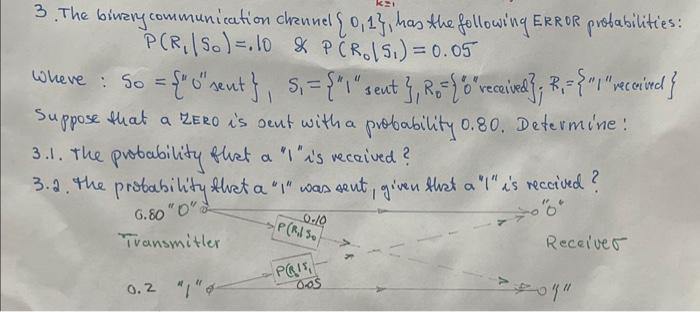 k=1
3. The binary communication channel {0,1}, has the following ERROR probabilities:
P(R₁|S₀)=.10 & P(R₀|S₁)=0.05
Where : S₀ = {"0" sent}, S₁={"1" sent}, R₀={"0" received}; R₁={"1" received}
Suppose that a ZERO is sent with a probability 0.80. Determine:
3.1. the probability that a "1" is received?
3.2. the probability that a "1" was sent, given that a "1" is received?
0.80 "0" 0.10 "0"
P(R₁|S₀
Transmitter Receiver
P(R₀|S₁
0.2 "1" 0.05 "1"